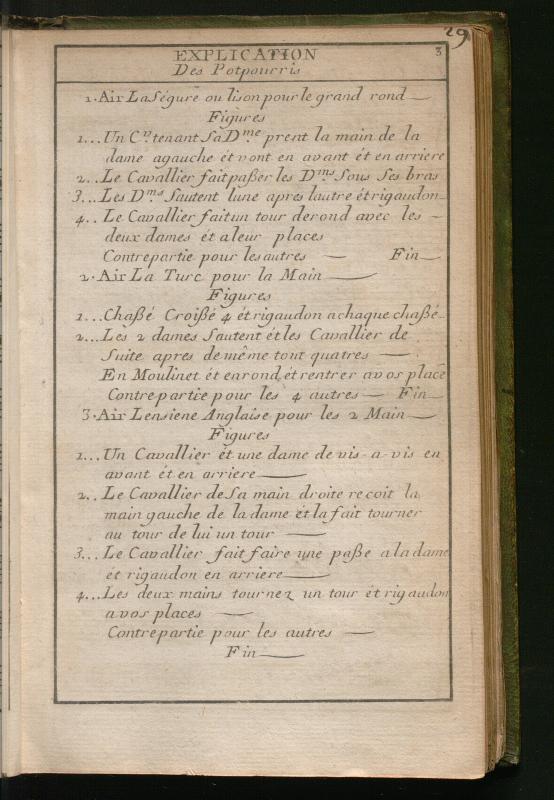 29
EXPLICATION 3
Des Potpourris
1. Air La Ségure ou lison pour le grand rond
Figures
1... Un C.r tenant Sa D.me prent la main de la
dame agauche ét vont en avant ét en arriere
2... Le Cavallier fait paßer les D.ms Sous Ses bras
3... Les D.ms Sautent lune apres lautre ét rigaudon
4.. Le Cavallier fait un tour de rond avec les
deux dames ét a leur places
Contrepartie pour les autres — Fin
2. Air La Turc pour la Main
Figures
1... Chaßé Croißé 4 ét rigaudon a chaque chaßé
2... Les 2 dames Sautent ét les Cavallier de
Suite apres de même tout quatres
En Moulinet ét en rond ét rentrer a vos place
Contrepartie pour les 4 autres — Fin
3. Air Lensiene Anglaise pour les 2 Main
Figures
1... Un Cavallier ét une dame de vis-a-vis en
avant ét en arriere
2.. Le Cavallier de Sa main droite recoit la
main gauche de la dame ét la fait tourner
au tour de lui un tour
3... Le Cavallier fait faire une paße a la dame
ét rigaudon en arriere
4... Les deux mains tournez un tour ét rigaudon
a vos places
Contrepartie pour les autres
Fin